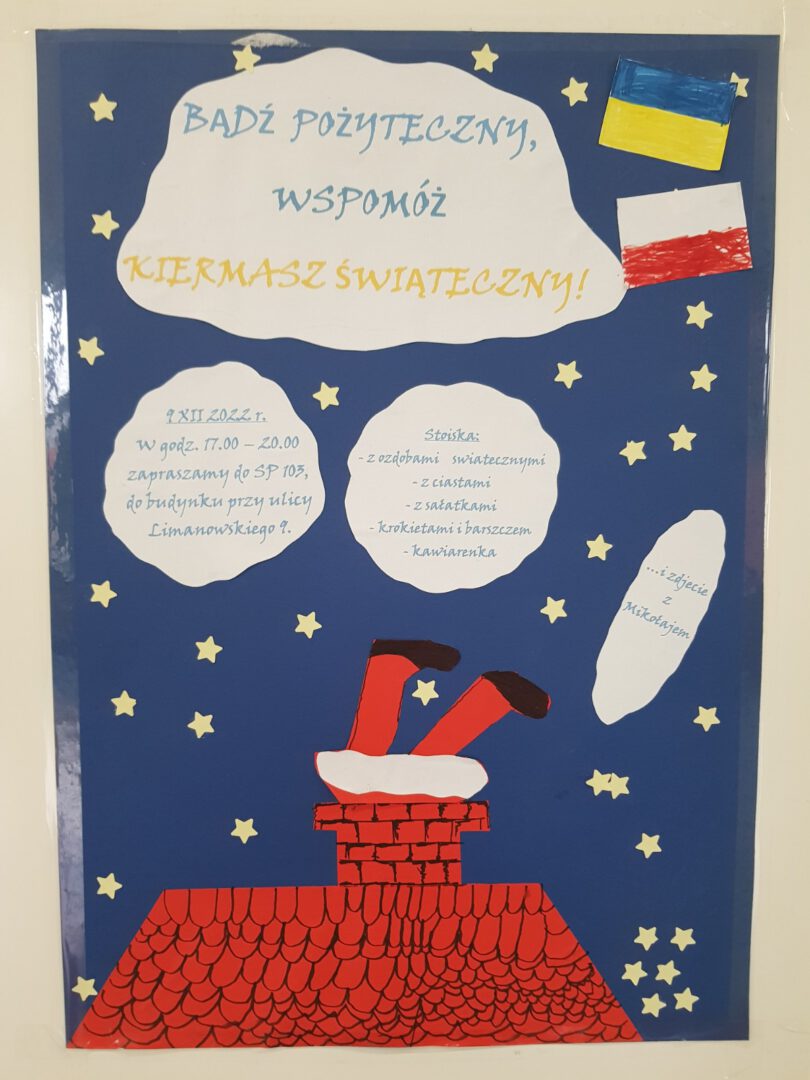 BĄDŹ POŻYTECZNY,
WSPOMÓŻ
KIERMASZ ŚWIĄTECZNY!
9 XII 2022 r.
W godz. 17.00 – 20.00
zapraszamy do SP 103,
do budynku przy ulicy
Limanowskiego 9.
Stoiska:
- z ozdobami swiatecznymi
- z ciastami
- z sałatkami
- krokietami i barszczem
- kawiarenka
...i zdjecie
z
Mikołajem